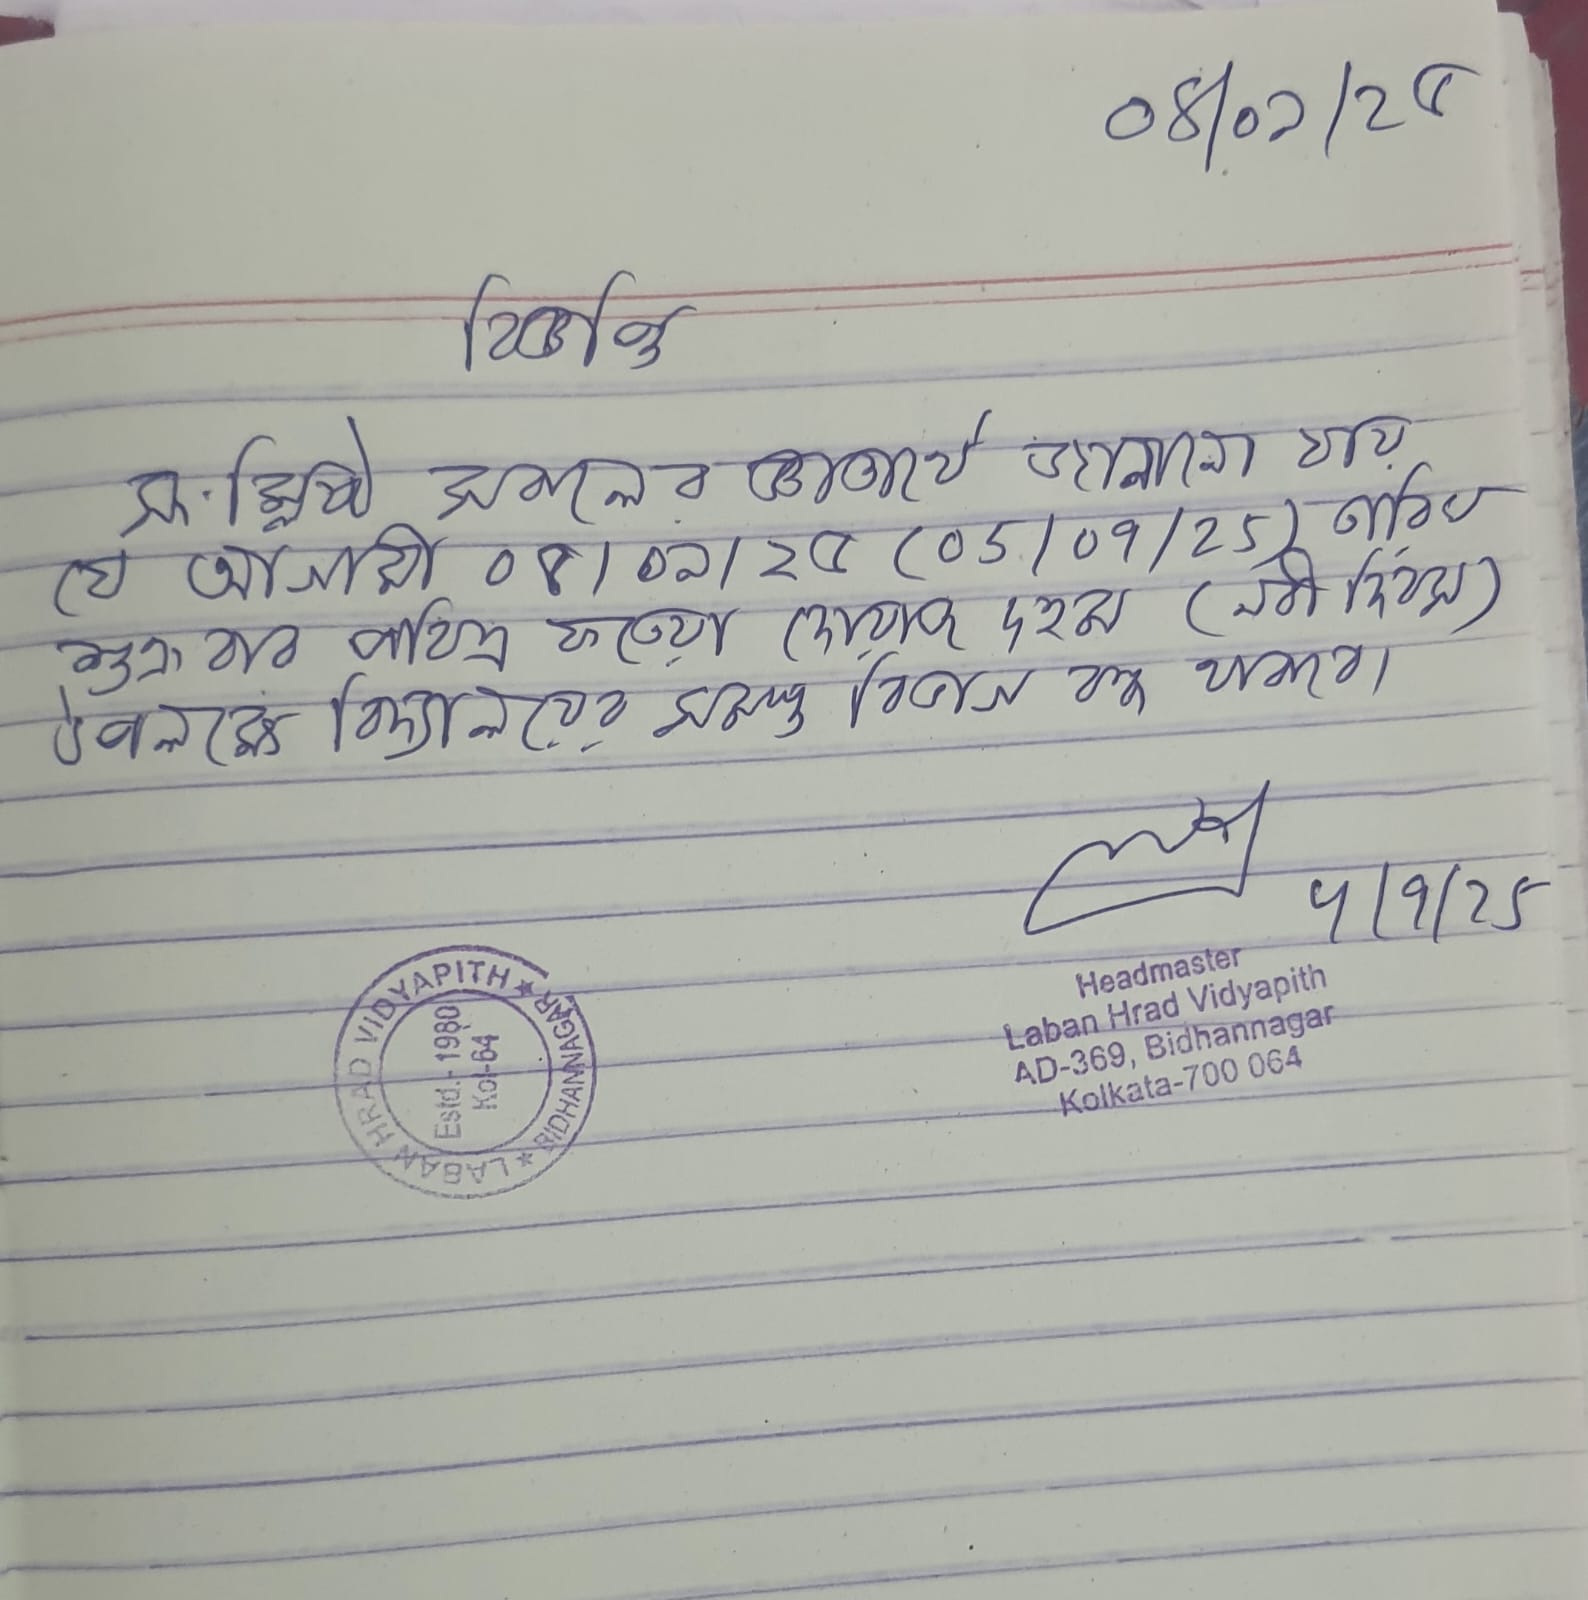 ০৪/০৯/২৫
বিজ্ঞপ্তি
সংশ্লিষ্ট সকলের জ্ঞাতার্থে জানানো যায়
যে আগামী ০৫/০৯/২৫ (05/09/25) তারিখ
শুক্রবার পবিত্র ফতেয়া দোয়াজ দহম (নবী দিবস)
উপলক্ষ্যে বিদ্যালয়ের সমস্ত বিভাগ বন্ধ থাকবে।
4/9/25
Headmaster
Laban Hrad Vidyapith
AD-369, Bidhannagar
Kolkata-700 064
LABAN HRAD VIDYAPITH ★ BIDHANNAGAR ★
Estd.-1980
Kol-64